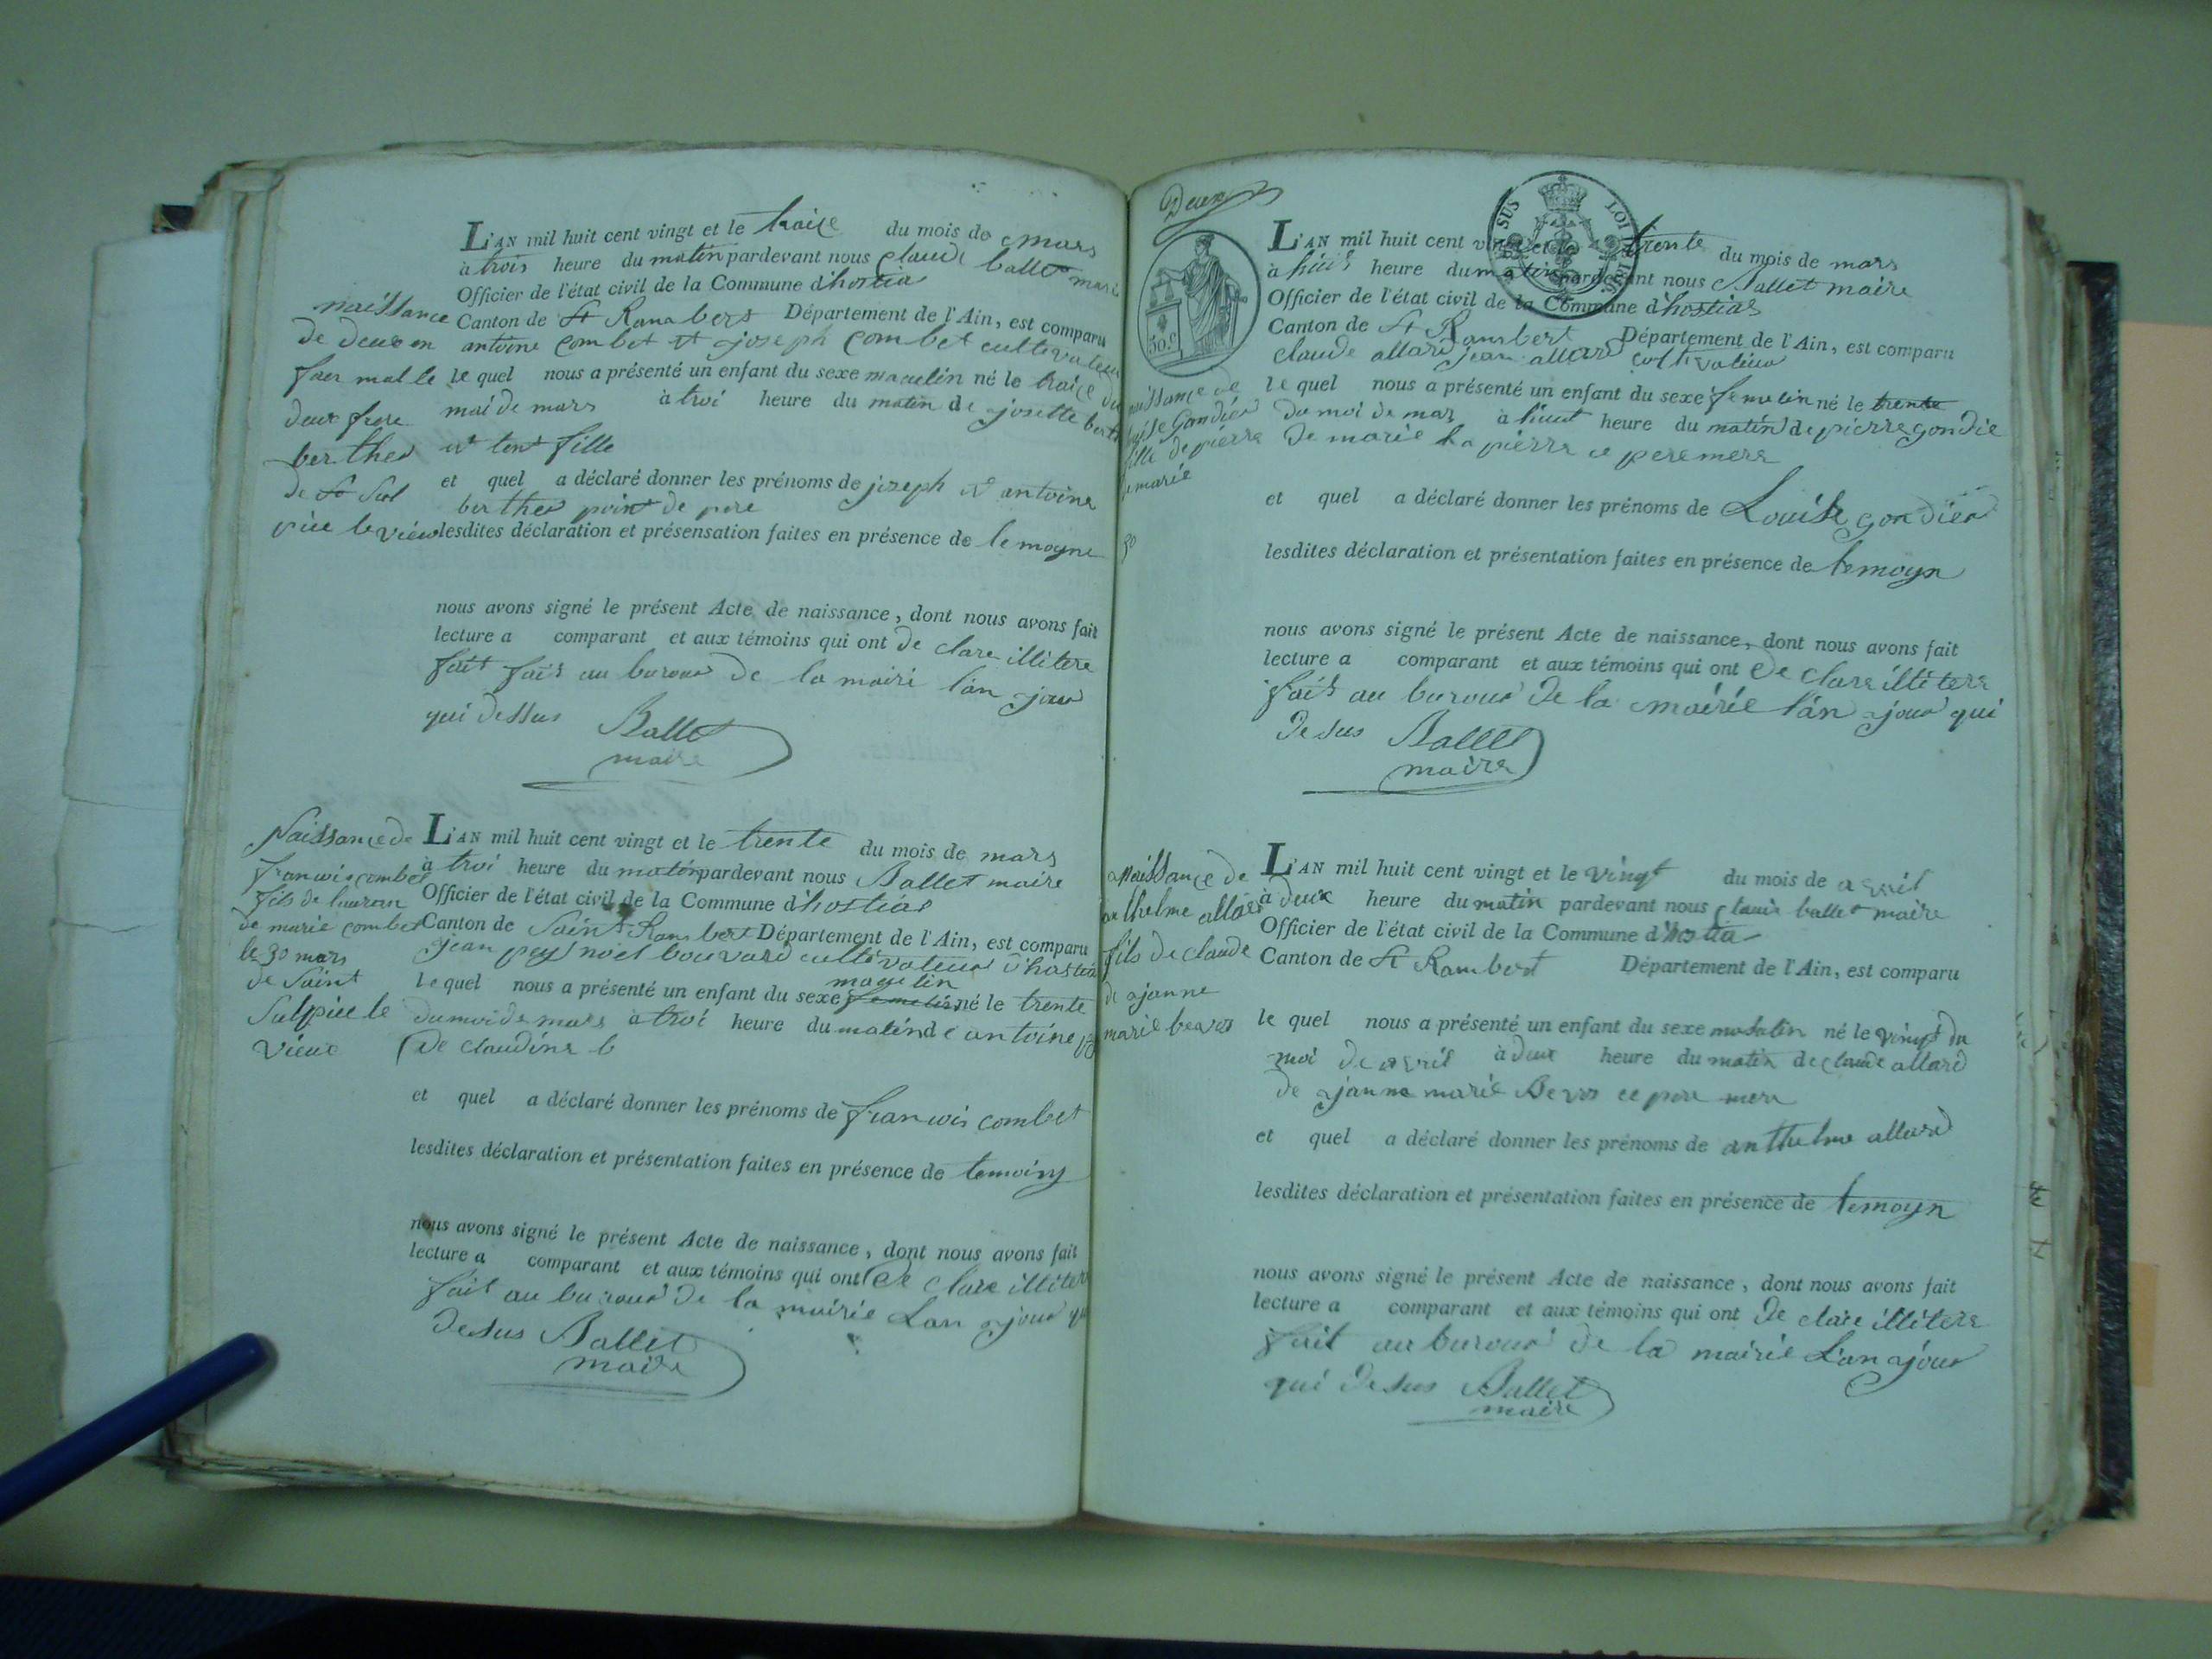 L'AN mil huit cent vingt et le traize du mois de mars
à trois heure du matin pardevant nous Claude ballet maire
Officier de l'état civil de la Commune d'hostias
Canton de St Ranabers Département de l'Ain, est comparu
antoine combet et joseph combet cultivateur
le quel nous a présenté un enfant du sexe masculin né le traize du
moi de mars à troi heure du matin de josette berthe
et tent fille
et quel a déclaré donner les prénoms de joseph et antoine
berthes point de pere
lesdites déclaration et présensation faites en présence de le moyne
nous avons signé le présent Acte de naissance, dont nous avons fait
lecture a comparant et aux témoins qui ont de clare illitere
fait fait au buroud de la mairi l'an jour
qui dessus Ballet
maire
naissance
de deux en
fan malle
deux frere
berthes
de St Sul
pice le vieux
L'AN mil huit cent vingt et le trente du mois de mars
à troi heure du matin pardevant nous Ballet maire
Officier de l'état civil de la Commune d'hostias
Canton de Saint Rambert Département de l'Ain, est comparu
jean noël bouvard cultivateur d'hostias
maselin
le quel nous a présenté un enfant du sexe femelin né le trente
du moi de mars à troi heure du matin de antoine
De claudine b
et quel a déclaré donner les prénoms de francois combet
lesdites déclaration et présentation faites en présence de temoins
nous avons signé le présent Acte de naissance, dont nous avons fait
lecture a comparant et aux témoins qui ont De clare illitere
fait au buroud de la mairie Lan jour qui
desus Ballet
maire
Naissance de
francois combet
fils de
de marie combet
le 30 mars
de Saint
Sulpice le
vieux
Deux
SUS LOI
50 c
L'AN mil huit cent vingt et le trente du mois de mars
à huit heure du matin pardevant nous Ballet maire
Officier de l'état civil de la Commune d'hostias
Canton de St Rambert Département de l'Ain, est comparu
claude allard jean allard cultivateur
le quel nous a présenté un enfant du sexe femelin né le trente
du moi de mars à huit heure du matin de pierre gondie
De marie la pierre ce pere mere
et quel a déclaré donner les prénoms de Louise gondier
lesdites déclaration et présentation faites en présence de temoyn
nous avons signé le présent Acte de naissance, dont nous avons fait
lecture a comparant et aux témoins qui ont De clare illitere
fait au buroud de la mairie l'an jour qui
desus Ballet
maire
naissance de
Louise Gondier
fille de pierre
de marie
30
L'AN mil huit cent vingt et le vingt du mois de avril
à deux heure du matin pardevant nous claude ballet maire
Officier de l'état civil de la Commune d'hostia
Canton de St Rambert Département de l'Ain, est comparu
le quel nous a présenté un enfant du sexe maselin né le vingt du
moi de avril à deux heure du matin de claude allard
de jeanne marie ce pere mere
et quel a déclaré donner les prénoms de anthelme allard
lesdites déclaration et présentation faites en présence de temoyn
nous avons signé le présent Acte de naissance, dont nous avons fait
lecture a comparant et aux témoins qui ont de clare illitere
fait au buroud de la mairie L'an jour
qui desus Ballet
maire
Naissance de
anthelme allard
fils de claude
de janne
marie